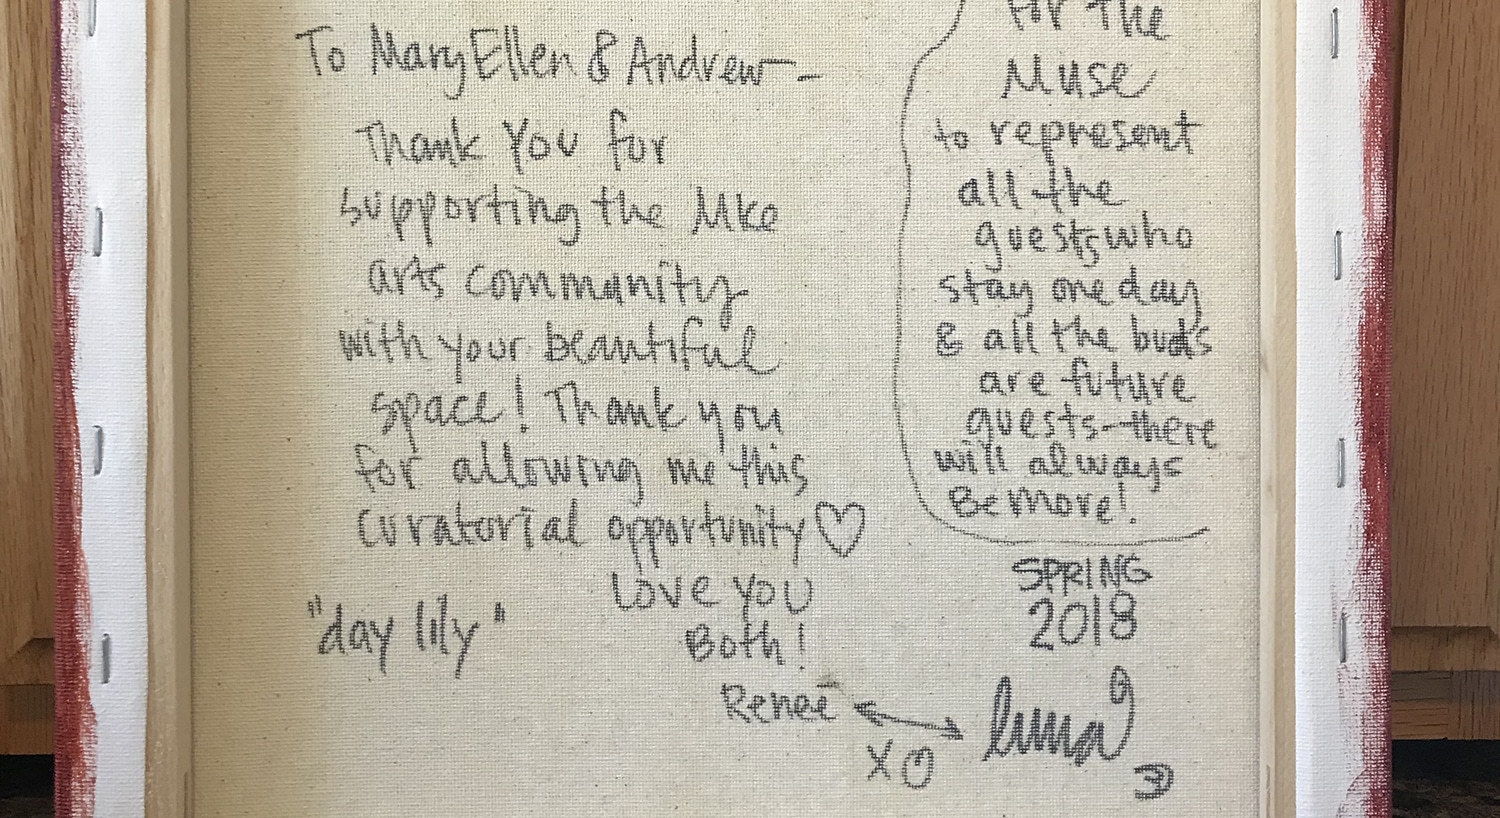 To MaryEllen & Andrew-
Thank You for
supporting the Mke
arts community
with your beautiful
space! Thank you
for allowing me this
curatorial opportunity♡
Love you
Both!
"day lily"
Renee
XO
For the
Muse
to represent
all the
guests who
stay one day
& all the buds
are future
guests-there
will always
Be more!
SPRING
2018
luna